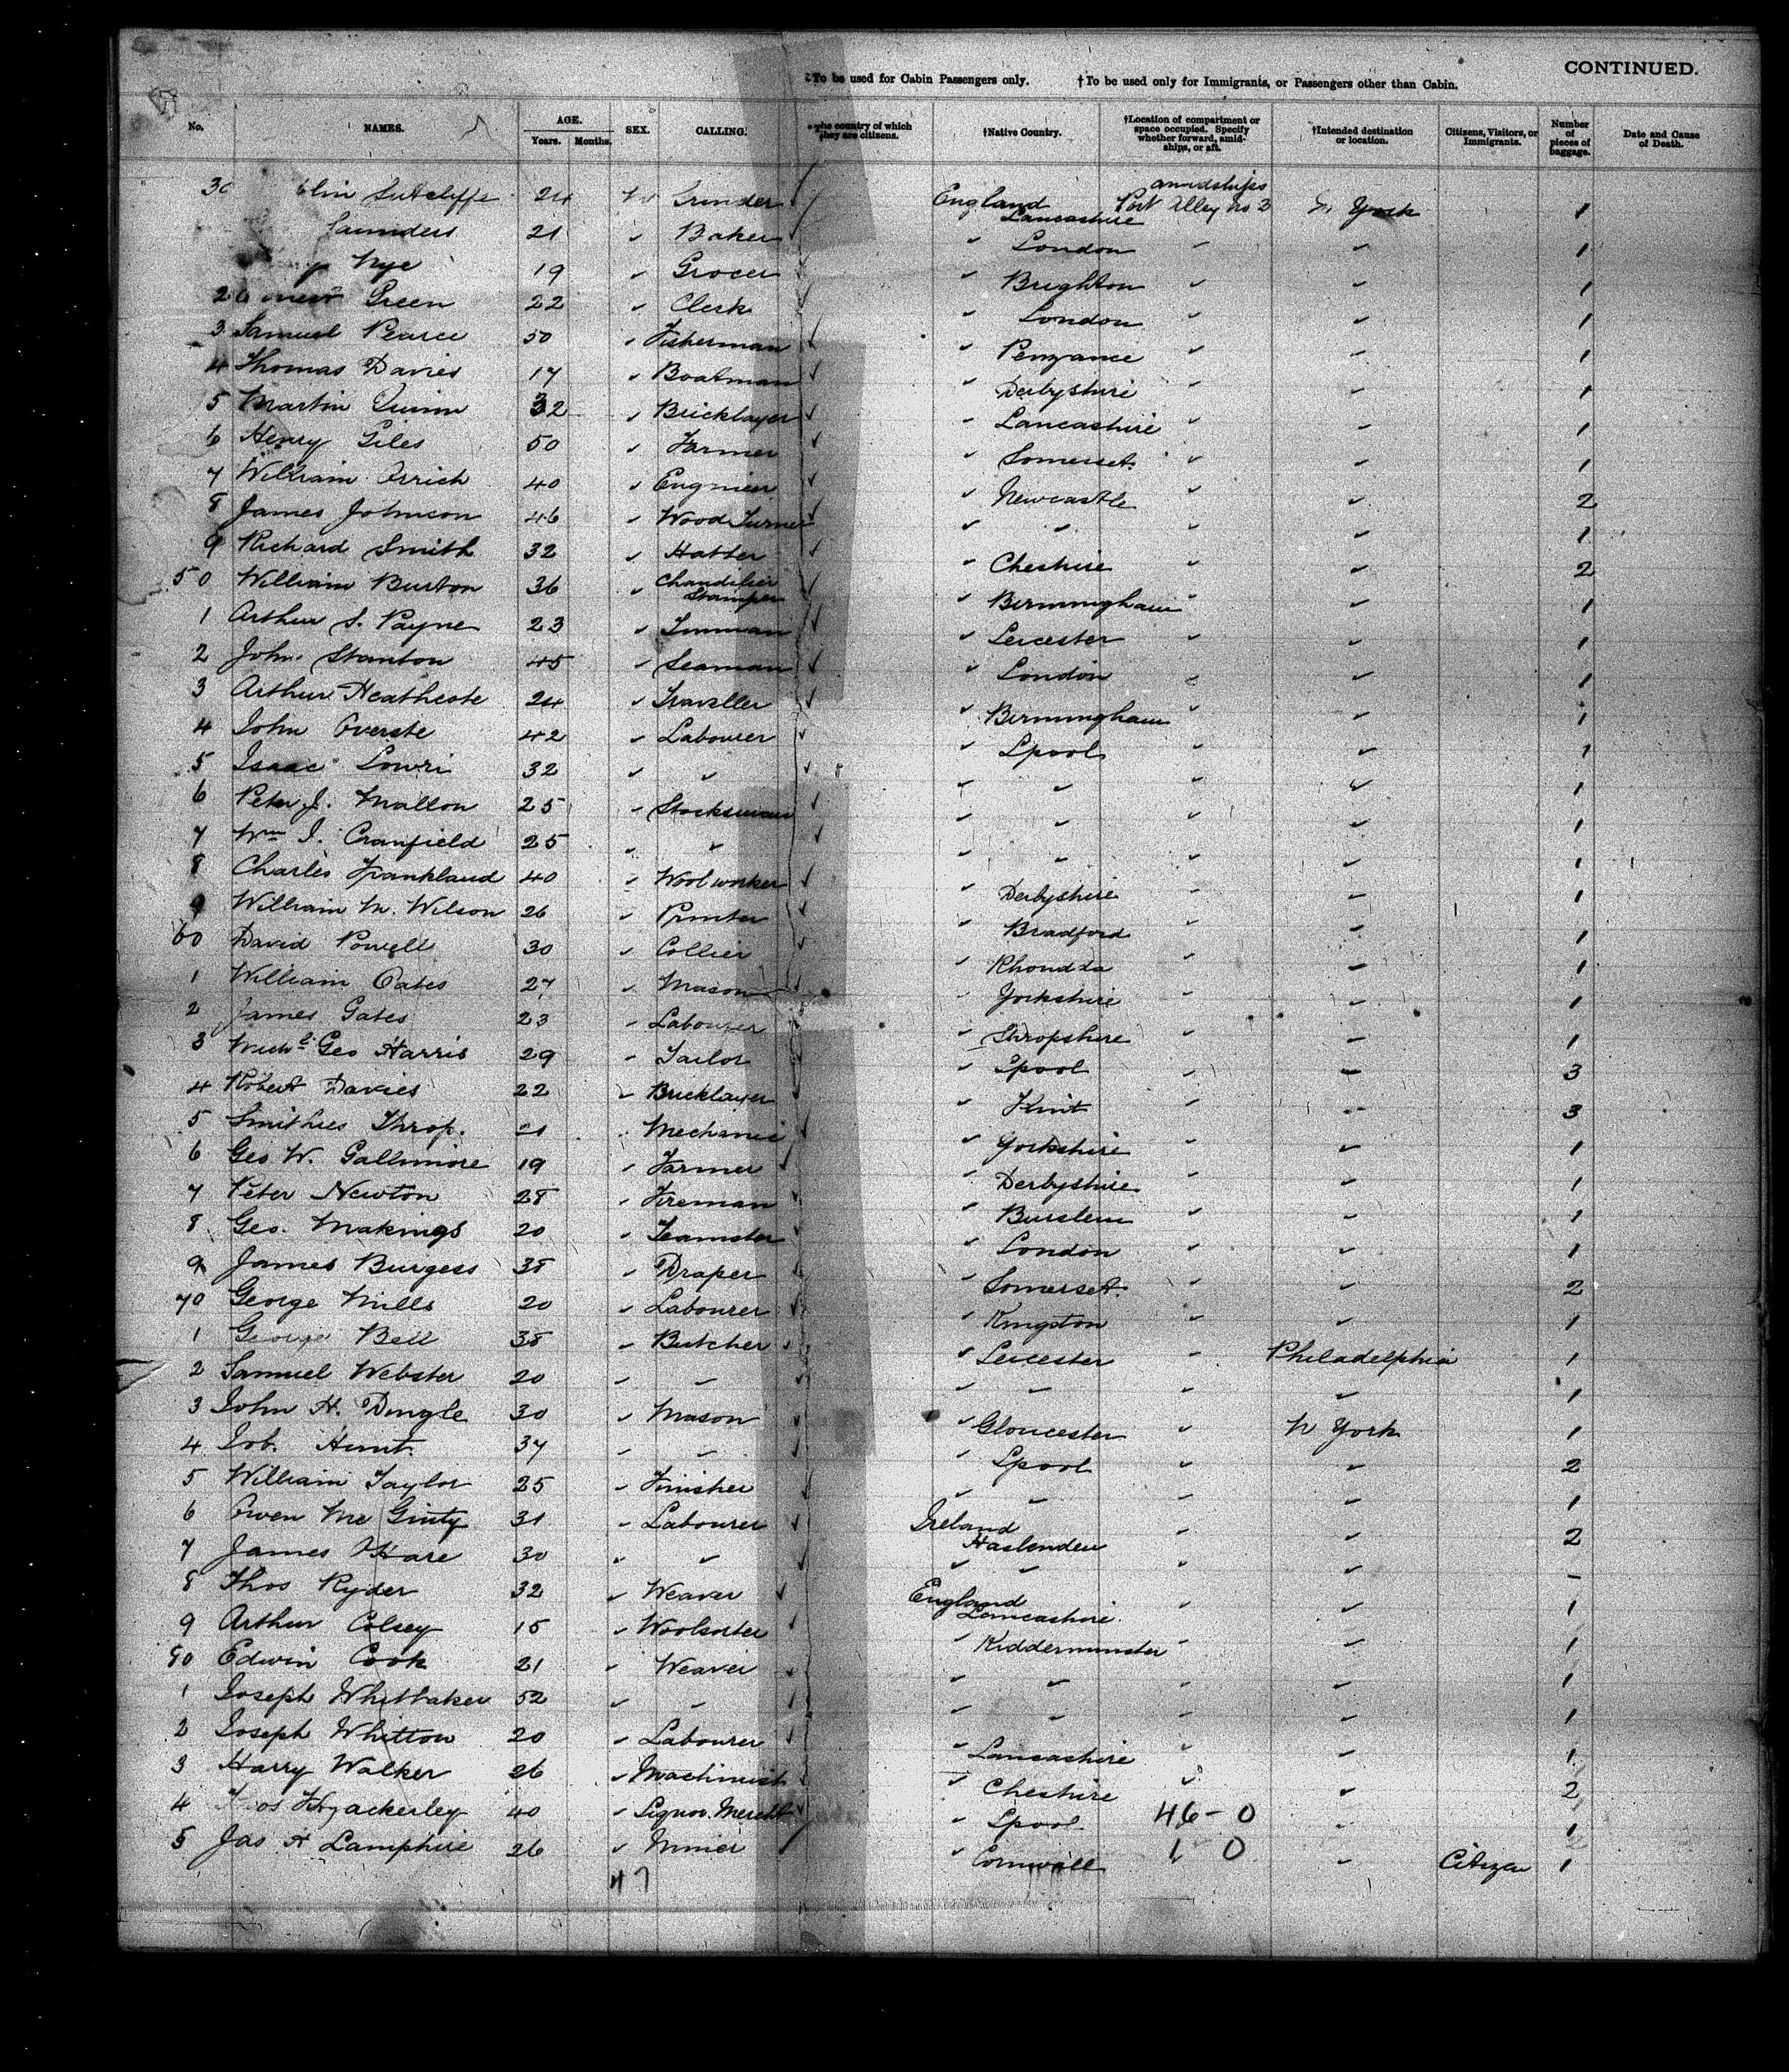 CONTINUED.
*To be used for Cabin Passengers only. †To be used only for Immigrants, or Passengers other than Cabin.
No. NAMES. AGE. Years. Months. SEX. CALLING. *The country of which they are citizens. †Native Country. †Location of compartment or space occupied. Specify whether forward, amidships, or aft. †Intended destination or location. Citizens, Visitors, or Immigrants. Number of pieces of baggage. Date and Cause of Death.
Sutcliffe 24 Grinder England Lancashire amidships Port Alley No 2 N York 1
Saunders 21 " Baker " London " " 1
Nye 19 " Grocer " Brighton " " 1
2 Green 22 " Clerk " London " " 1
3 Samuel Pearce 50 " Fisherman " Penzance " " 1
4 Thomas Davies 17 " Boatman " Derbyshire " " 1
5 Martin Quinn 32 " Bricklayer " Lancashire " " 1
6 Henry Giles 50 " Farmer " Somerset. " " 1
7 William 40 " Engineer " Newcastle " " 2
8 James Johnson 46 " Wood Turner " " " " 1
9 Richard Smith 32 " Hatter " Cheshire " " 2
50 William Burton 36 " Chandelier Stamper " Birmingham " " 1
1 Arthur S. Payne 23 " " Leicester " " 1
2 John Stanton 45 " Seaman " London " " 1
3 Arthur Heathcote 24 " Traveller " Birmingham " " 1
4 John 42 " Labourer " Lpool " " 1
5 Isaac Lowri 32 " " " " " " 1
6 Peter J. Mallon 25 " Stocksman " " " " 1
7 Wm J. Cranfield 25 " " " " " " 1
8 Charles Frankland 40 " Woolworker " Derbyshire " " 1
9 William M. Wilson 26 " Printer " Bradford " " 1
60 David Powell 30 " Collier " Rhondda " " 1
1 William Oates 27 " Mason " Yorkshire " " 1
2 James Gates 23 " Labourer " Shropshire " " 1
3 Geo Harris 29 " Tailor " Lpool " " 3
4 Robert Davies 22 " Bricklayer " " " 3
5 Smithies Throp. 21 " Mechanic " Yorkshire " " 1
6 Geo W. Gallimore 19 " Farmer " Derbyshire " " 1
7 Peter Newton 28 " Fireman " Burslem " " 1
8 Geo. Makings 20 " Teamster " London " " 1
9 James Burgess 38 " Draper " Somerset. " " 2
70 George Mills 20 " Labourer " Kingston " " 1
1 George Bell 38 " Butcher " Leicester " Philadelphia 1
2 Samuel Webster 20 " " " " " " 1
3 John H. Dingle 30 " Mason " Gloucester " N York 1
4 Job. Hunt. 37 " " " Lpool " " 2
5 William Taylor 25 " Finisher " " " " 1
6 Owen Mc Ginty 31 " Labourer Ireland Haslenden " " 2
7 James O'Hare 30 " " " " " " -
8 Thos Ryder 32 " Weaver England Lancashire. " " 1
9 Arthur Colsey 15 " Woolsorter " Kidderminster " " 1
80 Edwin Cook 21 " Weaver " " " " 1
1 Joseph Whittaker 52 " " " " " " 1
2 Joseph Whitton 20 " Labourer " Lancashire " " 1
3 Harry Walker 26 " Machinist " Cheshire " " 2
4 40 " Liquor Mercht " Lpool 46 - 0 " 1
5 Jas H Lamphire 26 " Miner " Cornwall 1 - 0 " Citizen 1
47